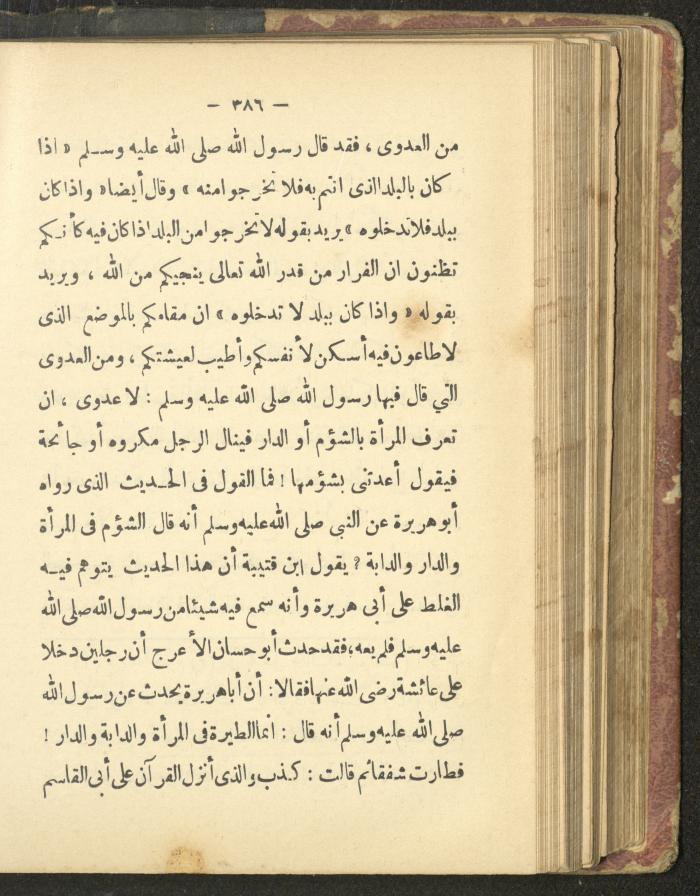 — ٣٨٦ —
من العدوى ، فقد قال رسول الله صلى الله عليه وسلم « اذا
كان بالبلد الذى انتم به فلا تخرجوا منه » وقال أيضا « واذا كان
ببلد فلا تدخلوه » يريد بقوله لا تخرجوا من البلد اذا كان فيه كأنكم
تظنون ان الفرار من قدر الله تعالى ينجيكم من الله ، ويريد
بقوله « واذا كان ببلد لا تدخلوه » ان مقامكم بالموضع الذى
لا طاعون فيه أسكن لأنفسكم وأطيب لعيشتكم ، ومن العدوى
التي قال فيها رسول الله صلى الله عليه وسلم : لا عدوى ، ان
تعرف المرأة بالشؤم أو الدار فينال الرجل مكروه أو جائحة
فيقول أعدتنى بشؤمها ! فما القول فى الحديث الذى رواه
أبو هريرة عن النبى صلى الله عليه وسلم أنه قال الشؤم فى المرأة
والدار والدابة ؟ يقول ابن قتيبة أن هذا الحديث يتوهم فيه
الغلط على أبى هريرة وأنه سمع فيه شيئا من رسول الله صلى الله
عليه وسلم فلم يعه ؛ فقد حدث أبو حسان الأعرج أن رجلين دخلا
على عائشة رضى الله عنها فقالا : أن أبا هريرة يحدث عن رسول الله
صلى الله عليه وسلم أنه قال : انما الطيرة فى المرأة والدابة والدار !
فطارت شفقا ثم قالت : كذب والذى أنزل القرآن على أبى القاسم